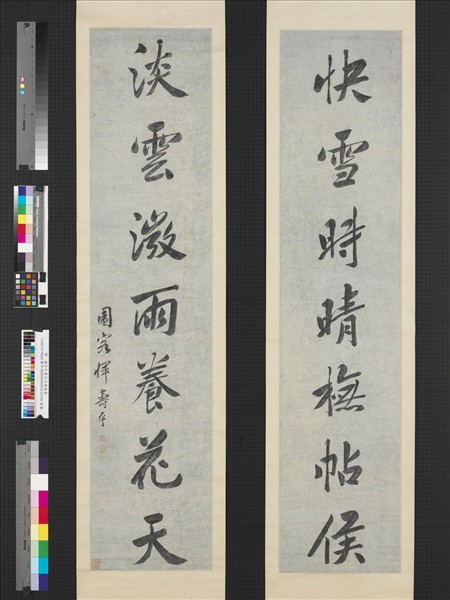 快雪時晴橅帖候
淡雲微雨養花天
園客惲壽平